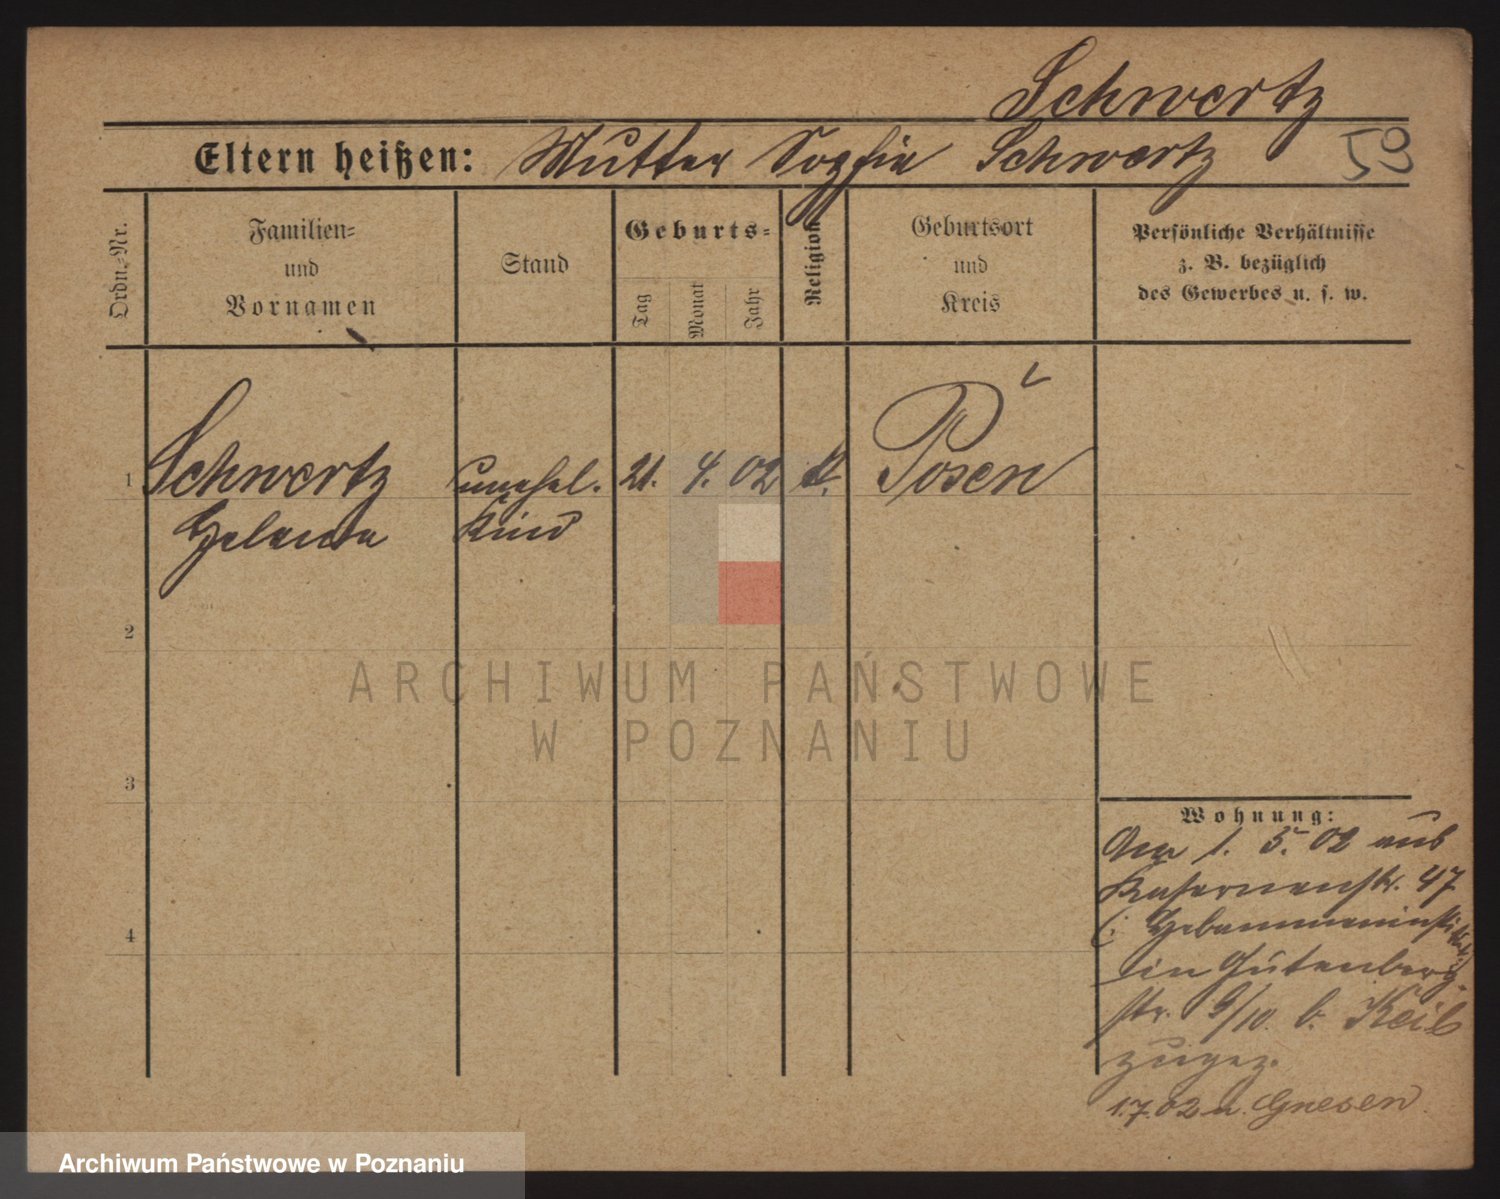 Schwertz
Eltern heißen: Mutter Sophie Schwertz
59
Ordn.-Nr.
Familien-
und
Vornamen
Stand
Geburts-
Tag
Monat
Jahr
Religion
Geburtsort
und
Kreis
Persönliche Verhältnisse
z. B. bezüglich
des Gewerbes u. s. w.
1
Schwertz unehel. 21. 4. 02 k. Posen
Helene Kind
2
3
4
Wohnung:
Am 1. 5. 02 aus
Kasernenstr. 47
(: Hebammeninstitut :)
in Gutenberg-
str. 9/10. b. Keil
zugez.
1.7.02 n. Gnesen
ARCHIWUM PAŃSTWOWE
W POZNANIU
Archiwum Państwowe w Poznaniu